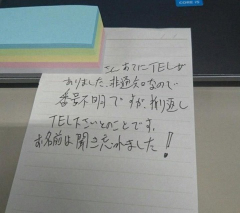 あてにTELが
ありました。非通知なので
番号不明ですが、折返し
TEL下さいとのことです。
お名前は聞き忘れました！